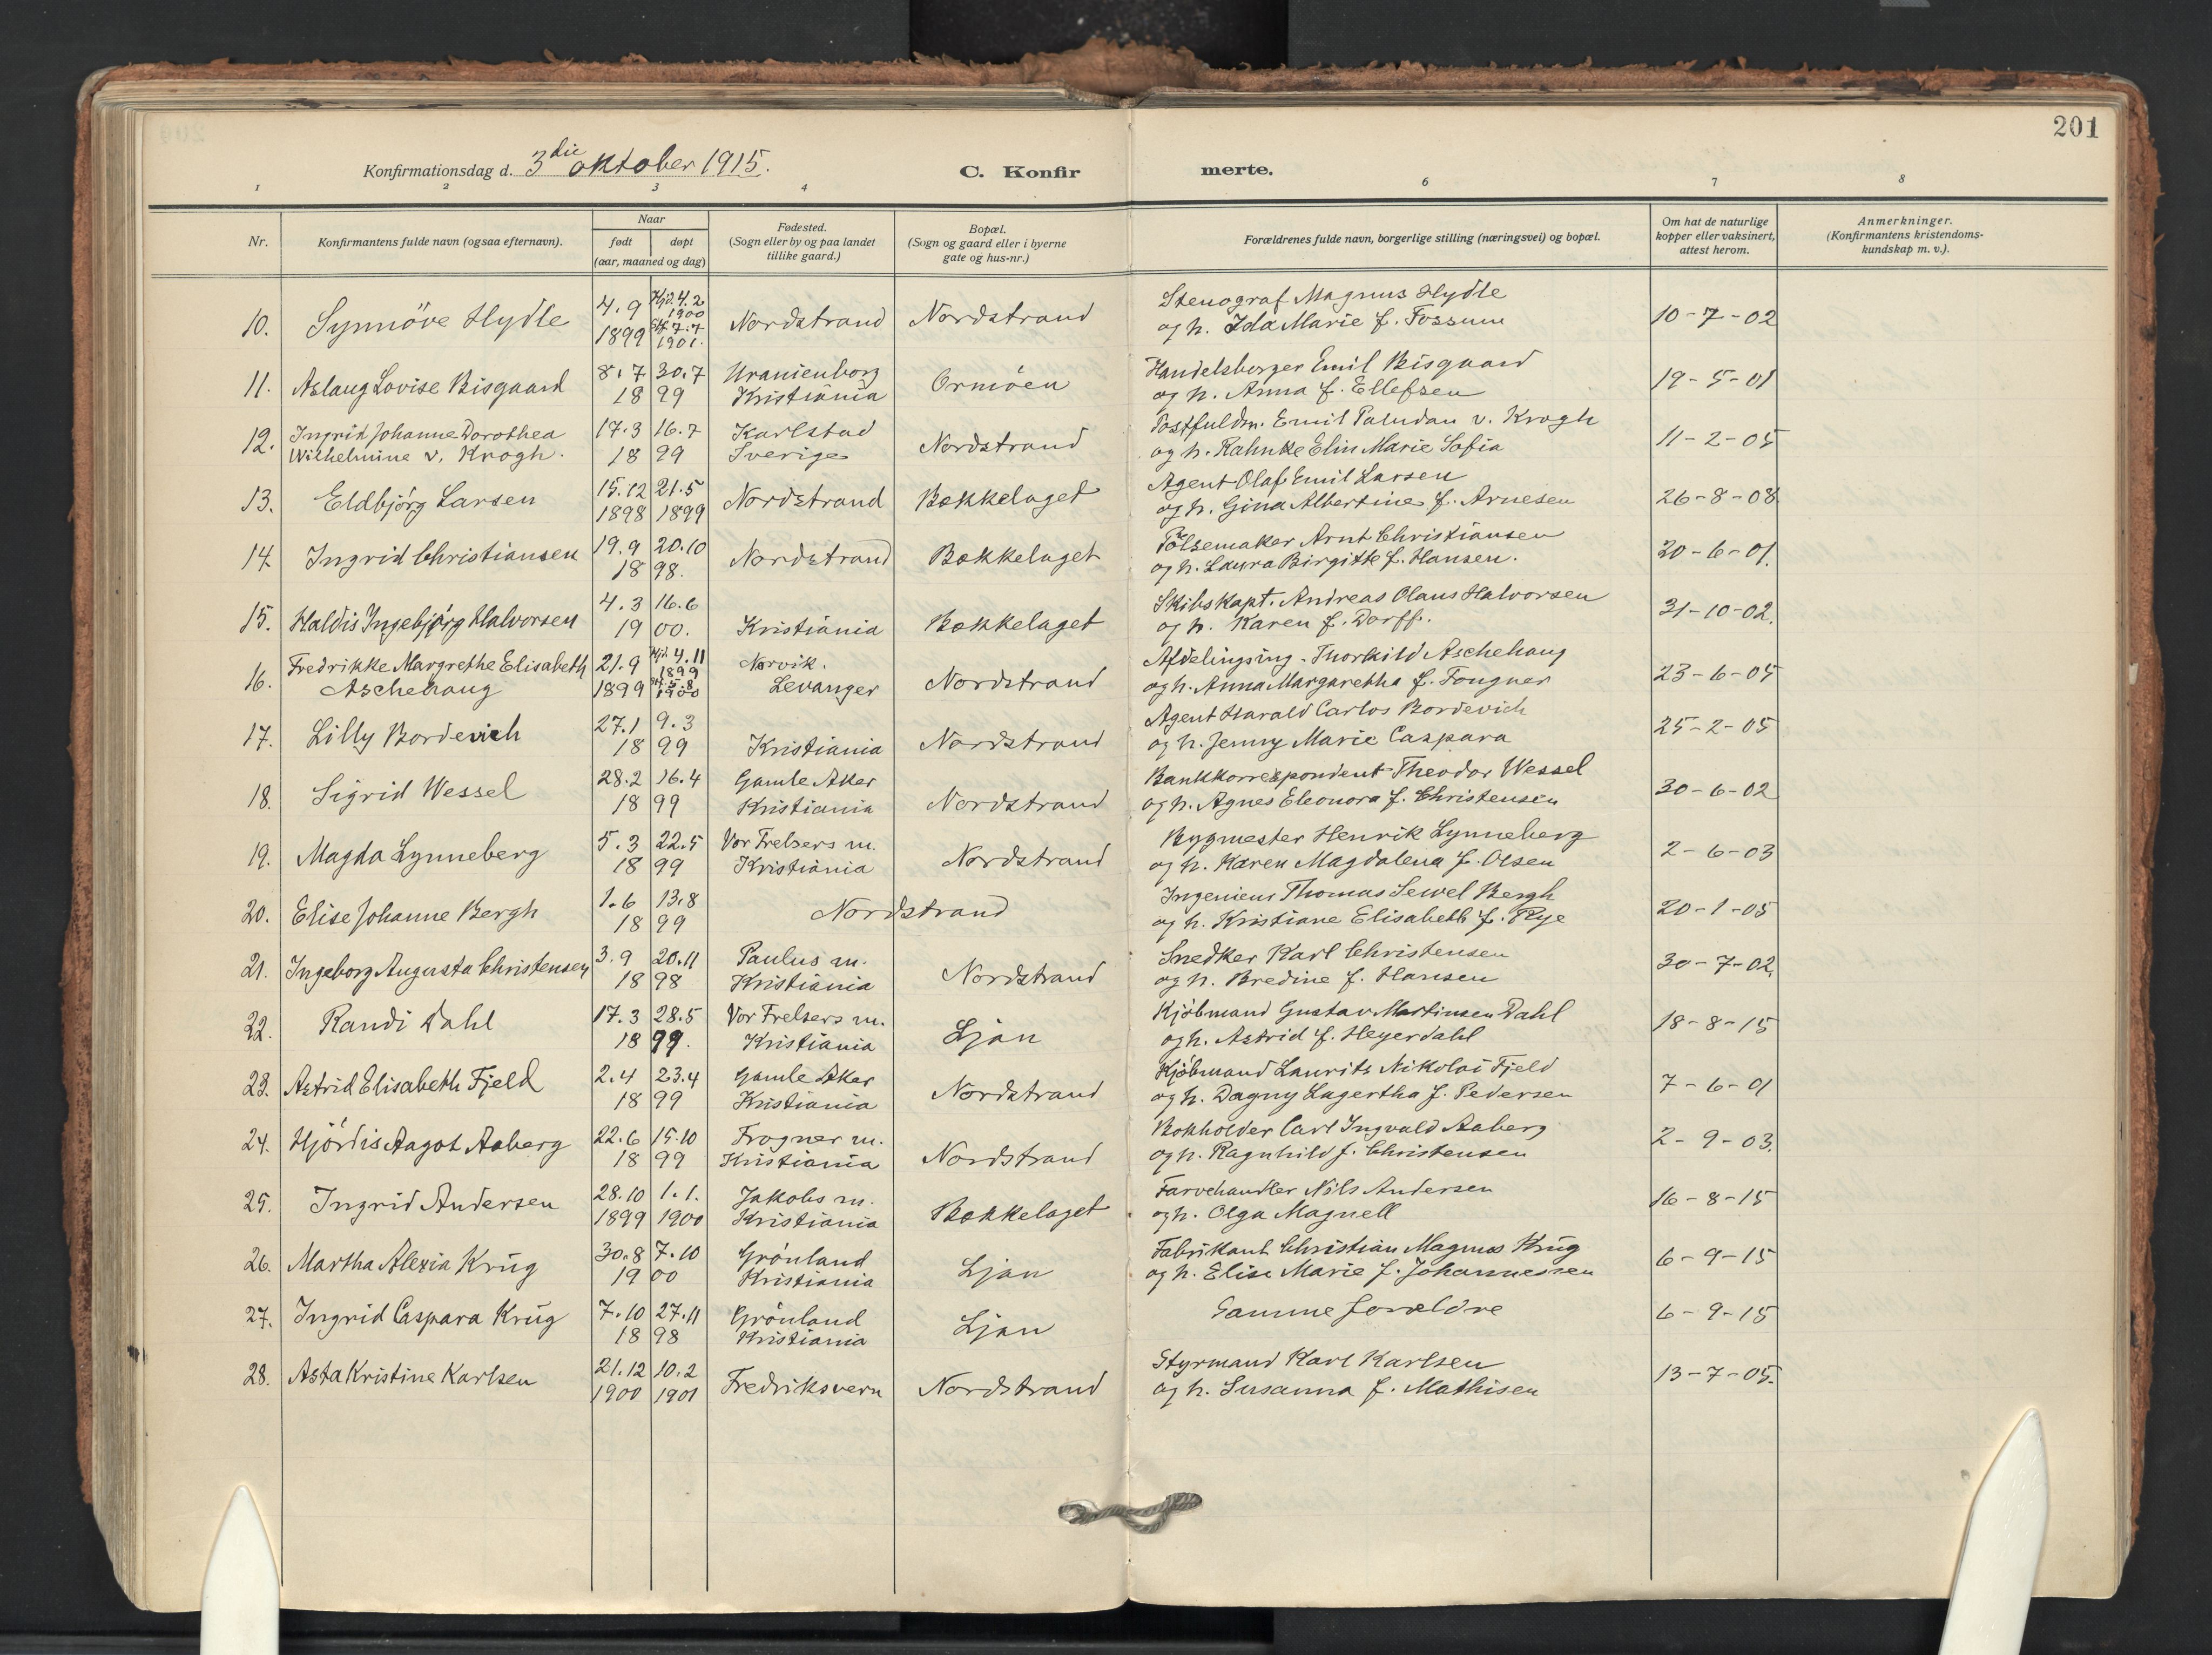 201
Konfirmationsdag d. 3die oktober 1915.
C. Konfirmerte.
1 2 3 4 6 7 8
Nr.
Konfirmantens fulde navn (ogsaa efternavn).
Naar
født døpt
(aar, maaned og dag)
Fødested.
(Sogn eller by og paa landet
tillike gaard.)
Bopæl.
(Sogn og gaard eller i byerne
gate og hus-nr.)
Forældrenes fulde navn, borgerlige stilling (næringsvei) og bopæl.
Om hat de naturlige
kopper eller vaksinert,
attest herom.
Anmerkninger.
(Konfirmantens kristendoms-
kundskap m. v.).
10. Synnöve Hydle 4.9 1899 Hjd. 4.2 1900 7.7 1901. Nordstrand Nordstrand Stenograf Magnus Hydle
og h. Ida Marie f. Fossum 10-7-02
11. Aslaug Lovise Bisgaard 8.7 30.7 Uranienborg Ormöen Handelsborger Emil Bisgaard 19-5-01
18 99 Kristiania og h. Anna f. Ellefsen
12. Ingrid Johanne Dorothea 17.3 16.7 Karlstad Nordstrand Postfuldm. Emil Paludan v. Krogh 11-2-05
Wilhelmine v. Krogh. 18 99 Sverige og h. Rahnke Elin Marie Sofia
13. Eldbjörg Larsen 15.12 21.5 Nordstrand Bækkelaget Agent Olaf Emil Larsen 26-8-08
1898 1899 og h. Gina Albertine f. Arnesen
14 Ingrid Christiansen 19.9 20.10 Nordstrand Bækkelaget Pölsemaker Arnt Christiansen 20-6-01.
18 98. og h. Laura Birgitte f. Hansen.
15. Haldis Ingebjörg Halvorsen 4.3 16.6 Kristiania Bækkelaget Skibskapt. Andreas Olaus Halvorsen 31-10-02.
19 00. og h. Karen f. Dorff.
16. Fredrikke Margrethe Elisabeth 21.9 Hjd. 4.11 1899 Narvik. Nordstrand Afdelingsing. Thorkild Aschehoug 23-6-05
Aschehoug 1899 5.8 1900 Levanger og h. Anna Margaretha f. Fougner
17. Lilly Bordevich 27.1 9.3 Kristiania Nordstrand Agent Harald Carlos Bordevich 25-2-05
18 99 og h. Jenny Marie Caspara
18. Sigrid Wessel 28.2 16.4 Gamle Aker Nordstrand Bankkorrespondent Theodor Wessel 30-6-02
18 99 Kristiania og h. Agnes Eleonora f. Christensen
19. Magda Lynneberg 5.3 22.5 Vor Frelsers m. Nordstrand Bygmester Henrik Lynneberg 2-6-03
18 99 Kristiania og h. Karen Magdalena f. Olsen
20. Elise Johanne Bergh 1.6 13.8 Nordstrand Ingenieur Thomas Sewel Bergh 20-1-05
18 99 og h. Kristiane Elisabeth f. Rye
21. Ingeborg Augusta Christensen 3.9 20.11 Paulus m. Nordstrand Snedker Karl Christensen 30-7-02.
18 98 Kristiania og h. Bredine f. Hansen
22. Randi Dahl 17.3 28.5 Vor Frelsers m. Ljan Kjöbmand Gustav Martinsen Dahl 18-8-15
18 99. Kristiania og h. Astrid f. Heyerdahl
23. Astrid Elisabeth Fjeld 2.4 23.4 Gamle Aker Nordstrand Kjöbmand Laurits Nikolai Fjeld 7-6-01
18 99 Kristiania og h. Dagny Lagertha f. Pedersen
24. Hjördis Aagot Aaberg 22.6 15.10 Frogner m. Nordstrand Bokholder Carl Ingvald Aaberg 2-9-03.
18 99 Kristiania og h. Ragnhild f. Christensen
25. Ingrid Andersen 28.10 1.1. Jakobs m. Bækkelaget Farvehandler Nils Andersen 16-8-15
1899 1900 Kristiania og h. Olga Magnell
26. Martha Alexia Krug 30.8 7.10 Grönland Ljan Fabrikant Christian Magnus Krug 6-9-15
19 00 Kristiania og h. Elise Marie f. Johannessen
27. Ingrid Caspara Krug 7.10 27.11 Grönland Ljan Samme forældre 6-9-15
18 98 Kristiania
28. Asta Kristine Karlsen 21.12 10.2 Fredriksvern Nordstrand Styrmand Karl Karlsen 13-7-05.
1900 1901 og h. Susanna f. Mathisen